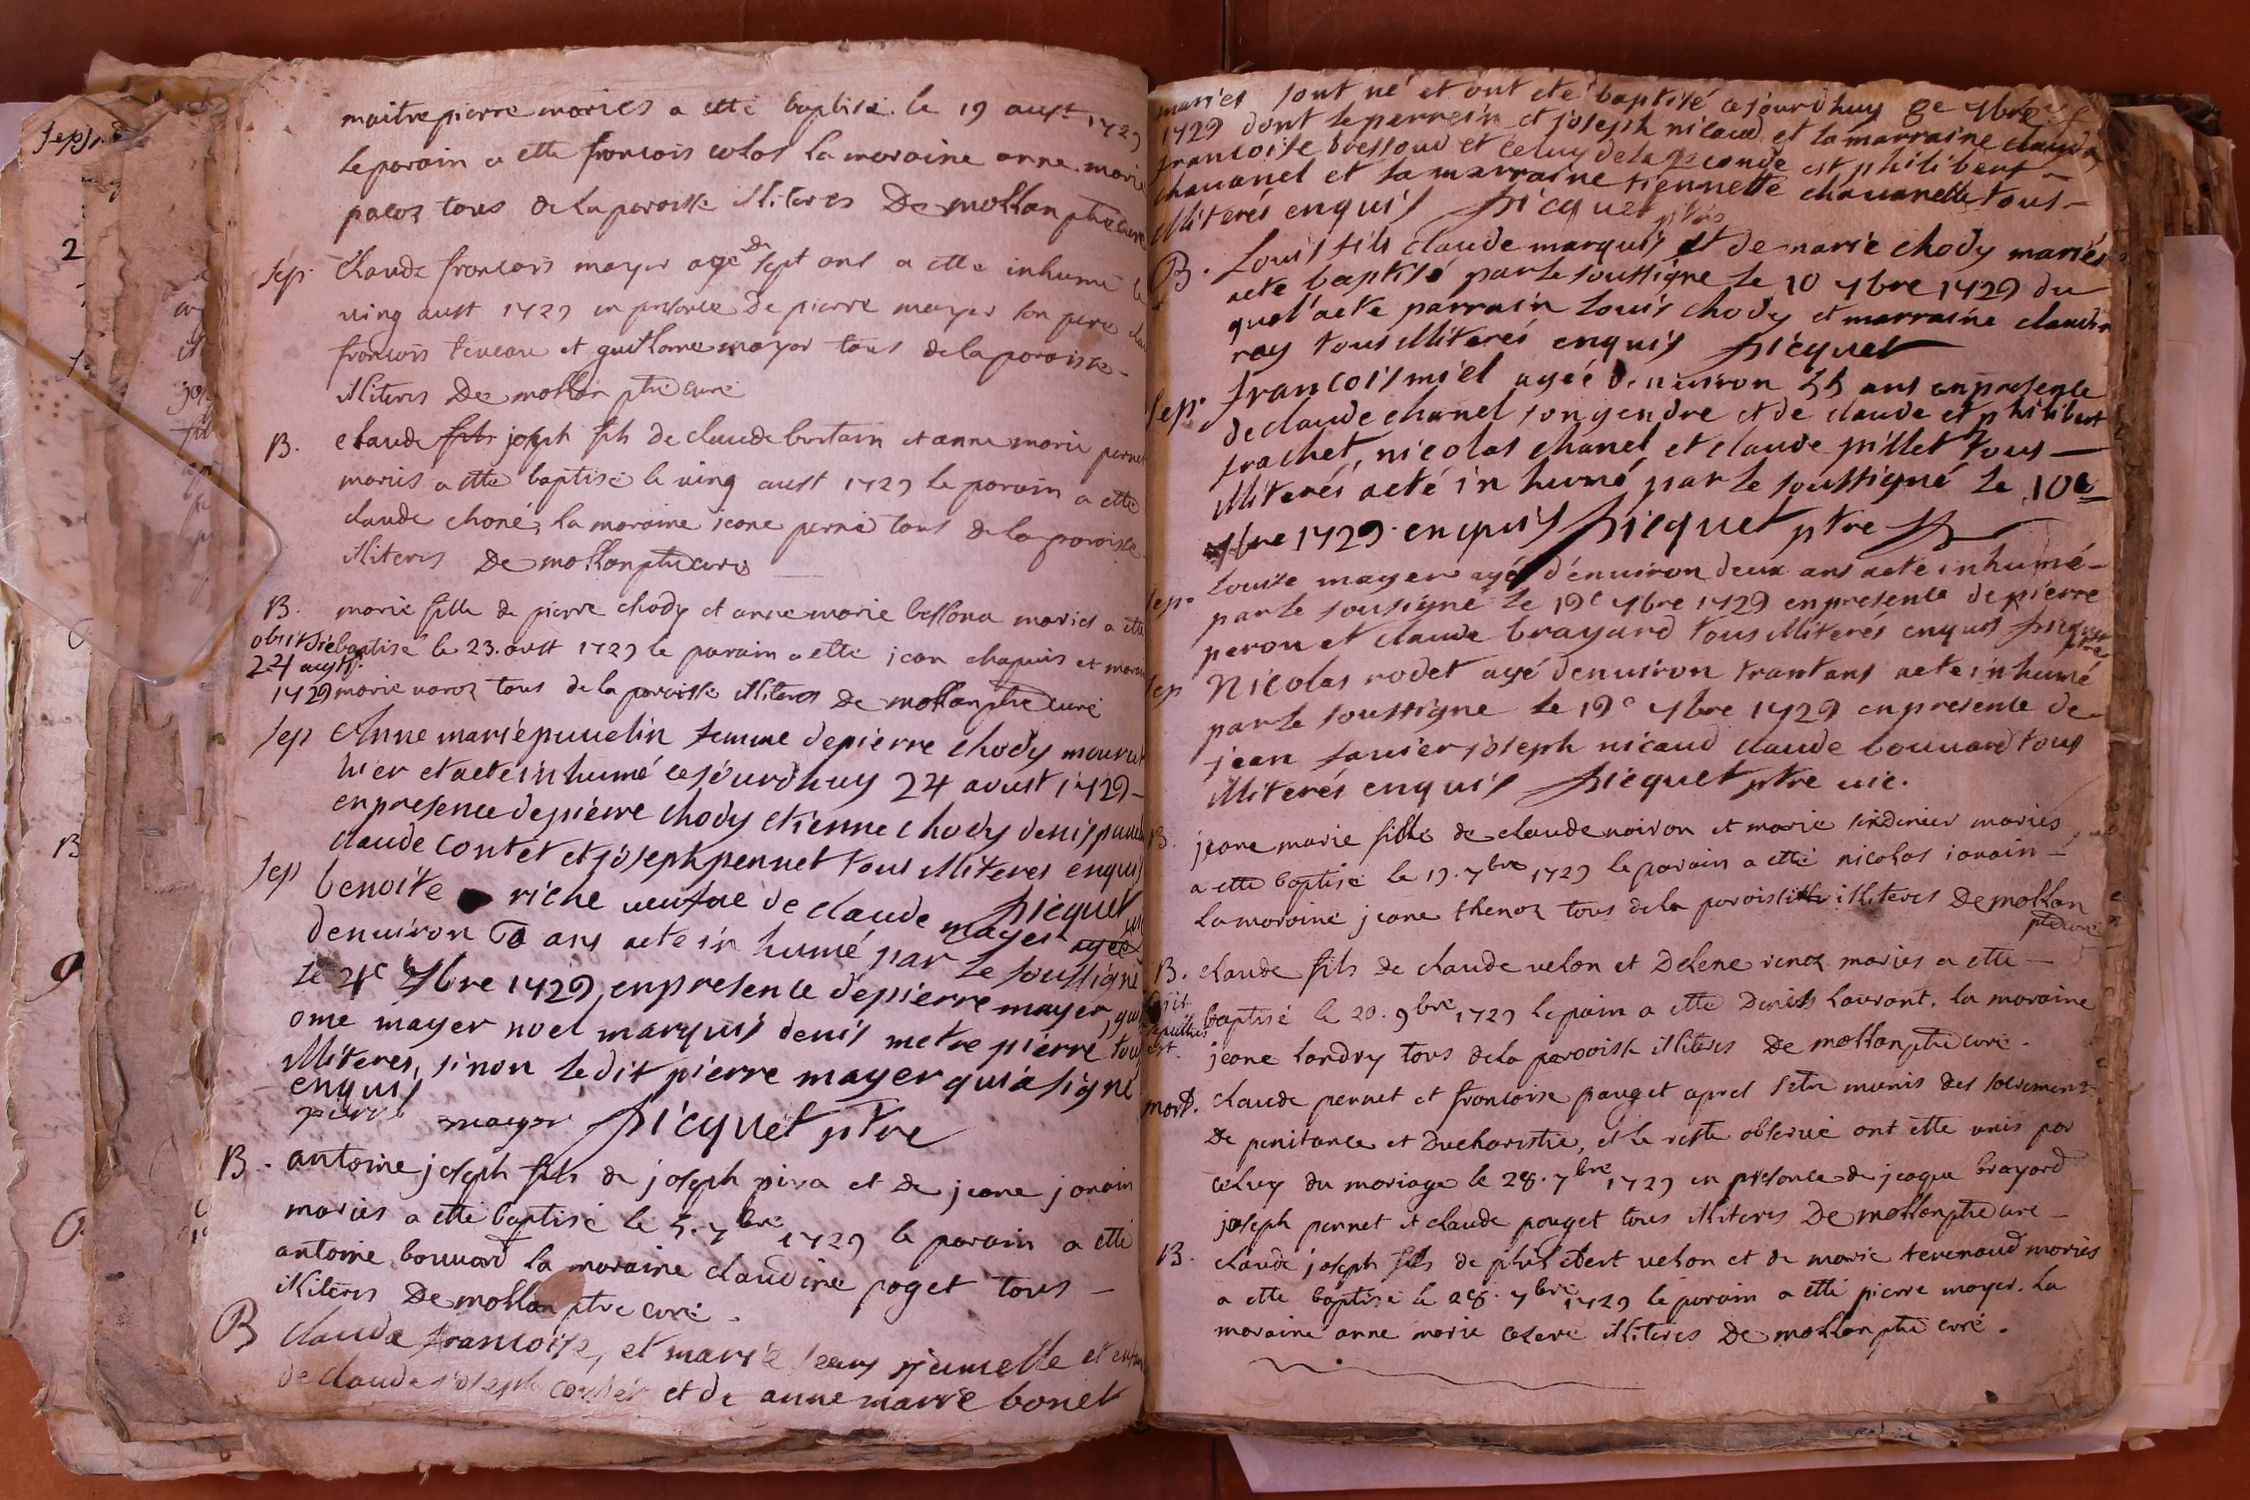 maitrepierre mariés a etté baptisé le 19 aust 1729
le parain a etté francois colas la maraine anne marie
pacoz tous de la paroisse illiteres De mollan ptre curé
sep. Claude francois mayer agé de sept ans a etté inhumé le
ving aust 1729 en presence De pierre mayer son pere
francois teueau et guillame mayer tous de la paroisse
illiteres De mollan ptre curé
B. claude fils joseph fils De claude bertain et anne marie pernet
mariés a etté baptisé le ving aust 1729 le parain a etté
claude choné, la maraine jeane perné tous de la paroisse
illiteres De mollan ptre curé
B. marie fille de pierre chody et anne marie bessona mariés a etté
obiit die baptisé le 23. aust 1729 le parain a etté jean chapuis et marai
24 augsti
1729 marie varoz tous de la paroisse illiteres De mollan ptre curé
sep Anne marie puuelin femme de pierre chody mourut
hier et a eté inhumé ce jourd'huy 24 aoust 1729
en presence de pierre chody etienne chody denis puuelin
claude contet et joseph pennet tous illiteres enquis
picquet
sep benoite riche ueufue de claude mayer agée
denuiron ans a eté in humé par le soussigné
le 4e 7bre 1729, en presence de pierre mayer, guil
ome mayer noel marquis denis metre pierre tous
illiteres, sinon le dit pierre mayer qui a signé
enquis
pierre mayer picquet ptre
B. antoine joseph fils de joseph piva et De jeane janain
mariés a etté baptisé le 5. 7bre 1729 le parain a etté
antoine bouuard la maraine claudine poget tous
illiteres De mollan ptre curé.
B claude francoise, et marie seurs jumelle et enfan
de claude joseph et de anne marie bonet
mariés sont né et ont eté baptisé ce jourd'huy 8e 7bre
1729 dont le perrein et joseph nicaud et la marraine claude
francoise bressoud et celuy de la seconde est philibert
chauanel et sa marraine tiennette chauanelle tous
illiterés enquis picquet ptre
B. Louis fils claude marquis et de marie chody mariés
a eté baptisé par le soussigné le 10 7bre 1729 du
quel a eté parrain louis chody et marraine claudin
ray tous illiterés enquis picquet
sep. francois miel agéé denuiron 55 ans en presence
de claude chanel son gendre et de claude et philibert
frachet, nicolas chanel et claude pillet tous
illiterés a eté in humé par le soussigné le 10e
7bre 1729 enquis picquet ptre
sep. louise mayer agé d'enuiron deux ans a eté inhumé
par le sousigné le 19e 7bre 1729 en presence de pierre
peron et claude brayard tous illiterés enquis picquet
ptre
sep Nicolas rodet agé denuiron trant ans a eté inhumé
par le soussigne le 19e 7bre 1729 en presence de
jean sauier joseph nicaud claude bouuard tous
illiterés enquis picquet ptre uic.
B. jeane marie fille de claude noiron et marie mariés
a etté baptisé le 19. 7bre 1729 le parain a etté nicolas ianain
la maraine jeane thenoz tous de la paroisse illiteres De mollan
ptre curé
B. claude fils de claude uelon et Delene renoz mariés a etté
baptisé le 20. 9bre 1729 le pain a etté Denis laurant. la maraine
est. jeane landry tous de la paroisse illiteres De mollan ptre curé.
mard. claude pernet et francoise pauget apres s'etre munis des sacrements
De penitance et Ducharistie, et le reste obserué ont etté unis par
celuy du mariage le 28. 7bre 1729 en presence de jeaque brayard
joseph pernet et claude pouget tous illiteres De mollan ptre curé
B. claude joseph fils de philibert uelon et de marie teuenaud mariés
a etté baptisé le 28. 7bre 1729 le parain a etté pierre mayer. la
maraine anne marie illiteres De mollan ptre curé.